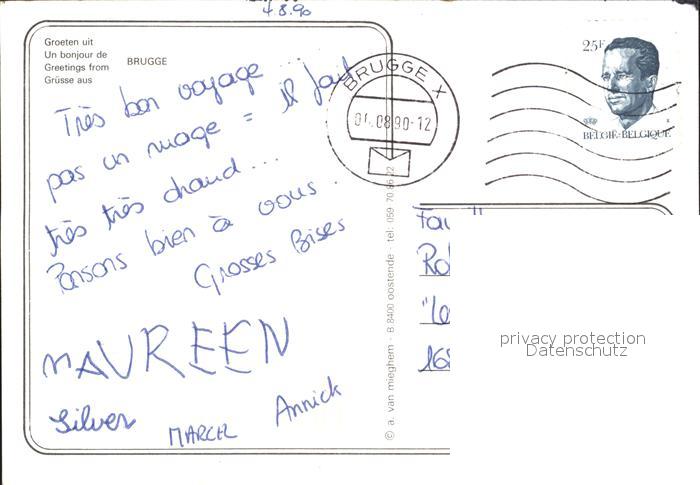 4.8.90
Groeten uit
Un bonjour de
Greetings from
Grüsse aus
BRUGGE
Très bon voyage ... il fait
pas un nuage =
très très chaud...
Pensons bien à vous.
Grosses Bises
MAUREEN
Silver
MARCEL
Annick
BRUGGE X
04.08.90-12
25F
BELGIË-BELGIQUE
© a. van mieghem - B 8400 oostende - tel. 059 70
privacy protection
Datenschutz